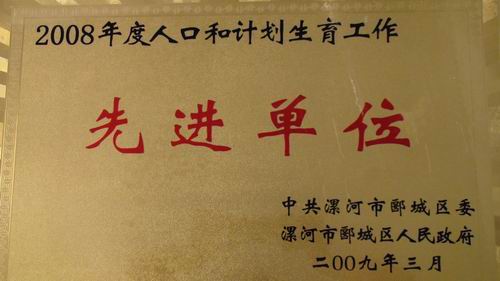 2008年度人口和计划生育工作
先进单位
中共漯河市郾城区委
漯河市郾城区人民政府
二00九年三月